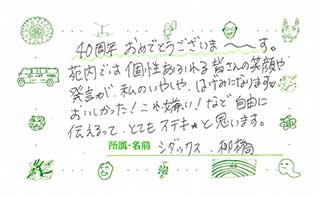 40周年 おめでとうございま〜〜す。
苑内では個性あふれる皆さんの笑顔や
発言が、私のいやしや、はげみになります。
おいしかった！これ嫌い！など自由に
伝えるって、とてもステキ★と思います。
所属・名前 シダックス 柳橋